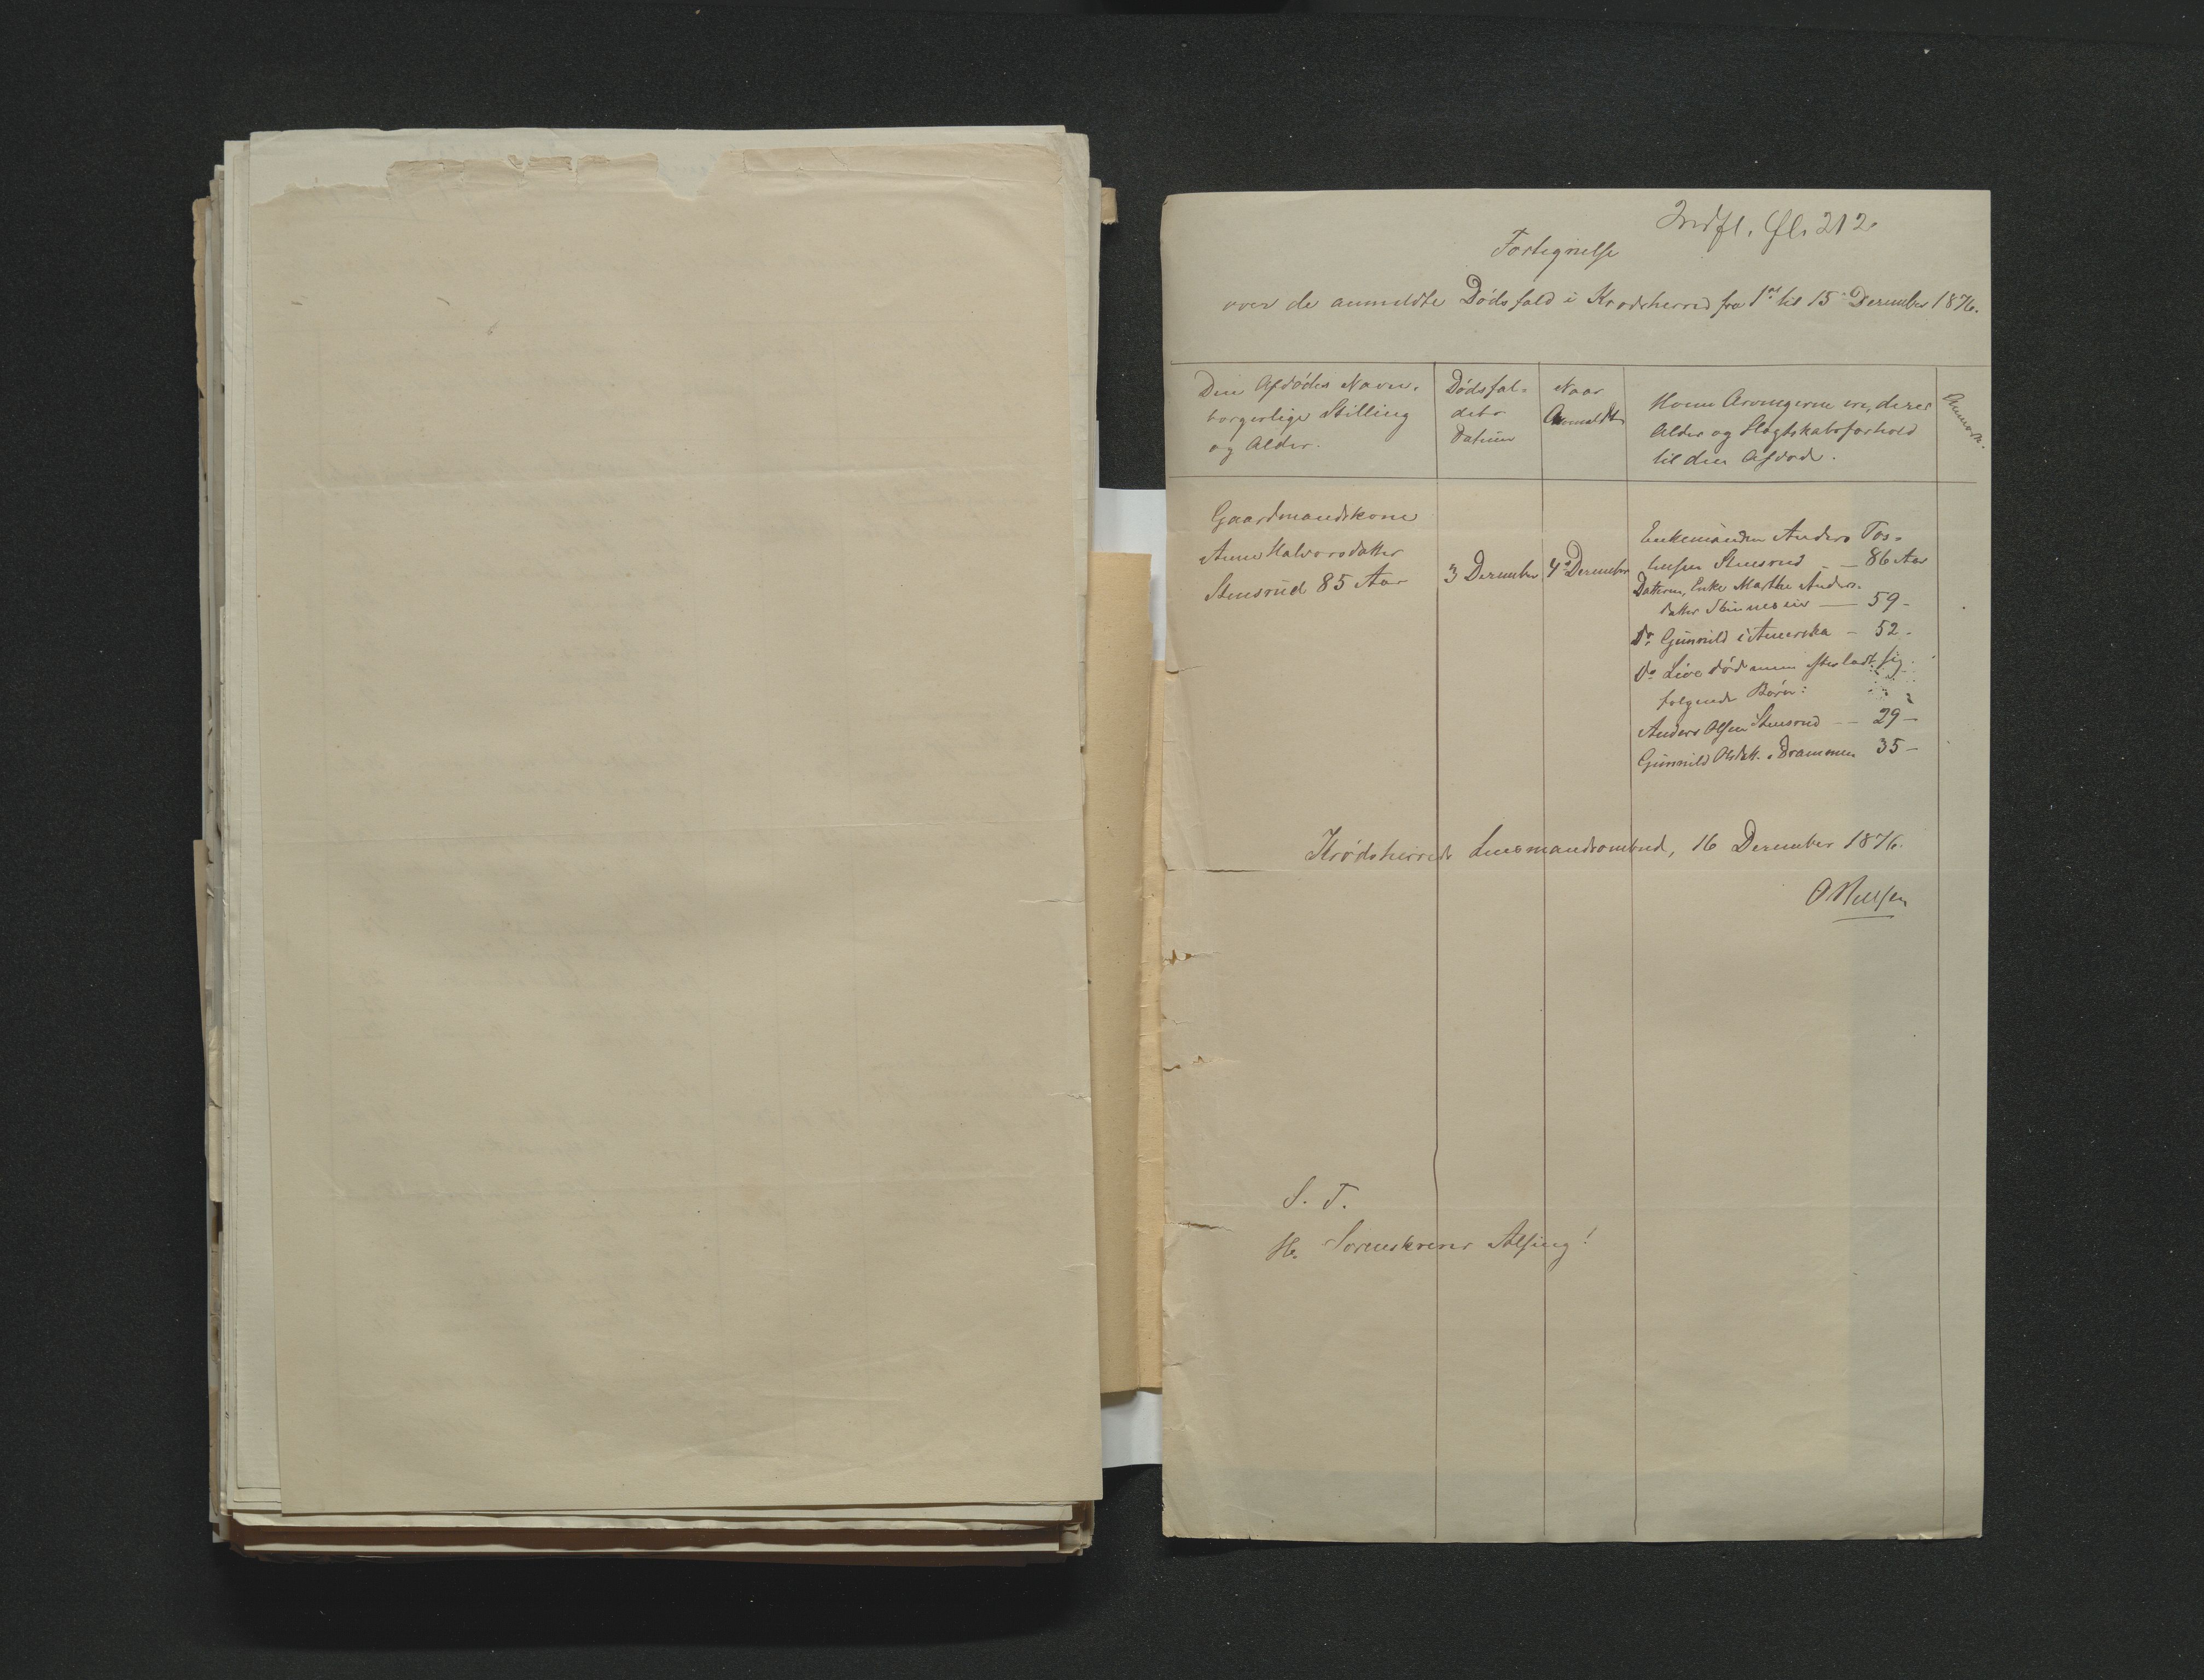 Indfl. Fl. 212
Fortegnelse
over de anmeldte Dødsfald i Krødsherred fra 1ste til 15 December 1876.
Den Afdødes Navn,
borgerlige Stilling
og Alder.
Dødsfal-
dets
Datum
Naar
Anmeldt
Hvem Arvingerne ere, deres
Alder og Slægtskabsforhold
til den Afdøde.
Anmærk.
Gaardmandskone
Anne Halvorsdatter
Stensrud 85 Aar
3 December
4de December
Enkemanden Anders Tos-
tensen Stensrud — 86 Aar
Datteren, Enke Marthe Anders-
datter — 59 -
Do Gunnild i Amerika - 52 -
Do Live død men efterladt sig
følgende Børn:
Anders Olsen Stensrud — 29 -
Gunnild Olsdatt. Drammen 35 -
Krødsherreds Lensmandsombud, 16 December 1876.
O Nielsen
S. T.
Hr. Sorenskriver Alsing!